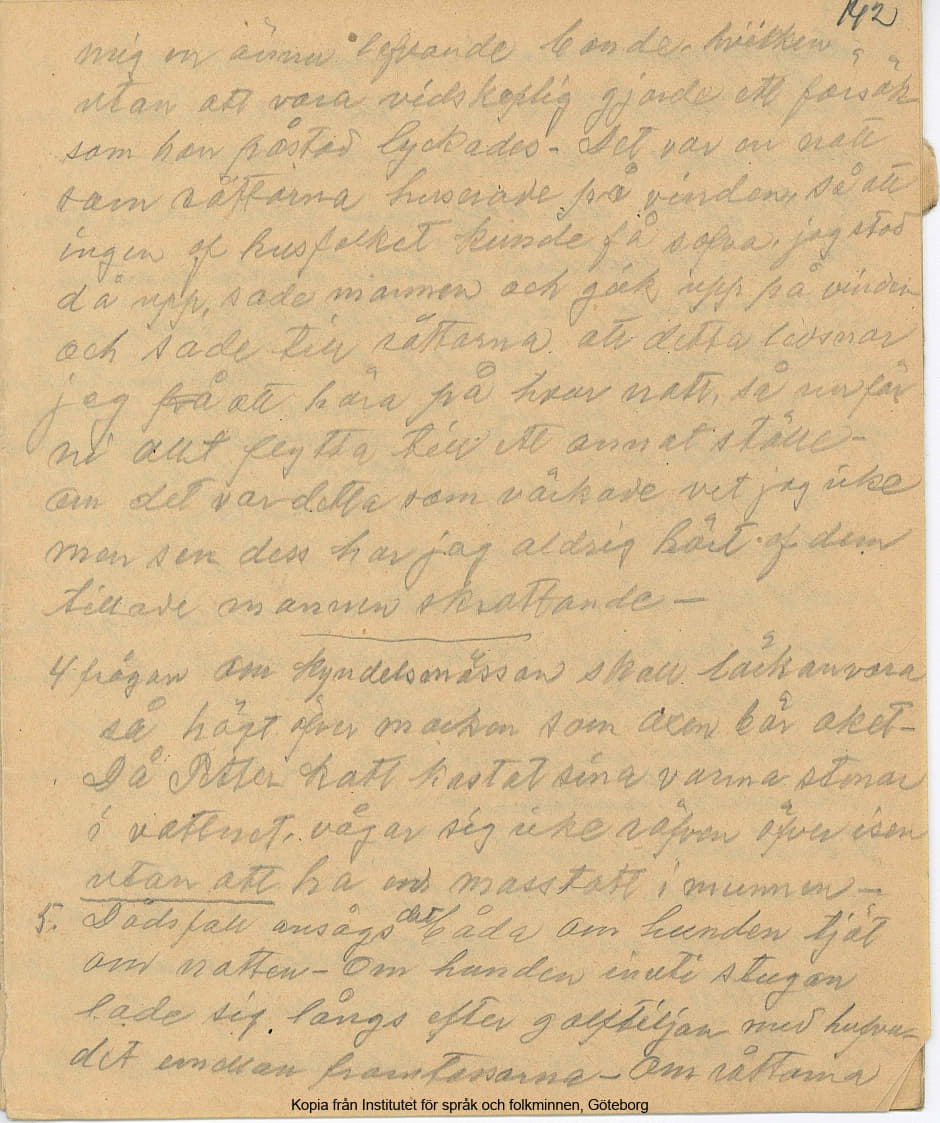 142
mig en ännu lefvande bonde, hvilken
utan att vara vidskeplig gjorde ett försök
som han påstod lyckades - Det var en natt
som råttorna huserade på vinden, så att
ingen af husfolket kunde få sofva, jag stod
då upp, sade mannen och gick upp på vinden
och sade till råttorna att detta ledsnar
jag på att höra på hvar natt, så nu får
ni allt flytta till ett annat ställe -
Om det var detta som värkade vet jag icke
men sen dess har jag aldrig hört af dem
tillade mannen skrattande -
4 frågan Om kyndelsmässan skall bäcken vara
så högt öfver marken som oxen bär oket -
Då Petter Katt kastat sina varma stenar
i vattnet, vågar sig icke räfven öfver isen
utan att ha en masstott i munnen -
5. Dödsfall ansågs det båda om hunden tjöt
om natten - Om hunden inuti stugan
lade sig långs efter golftiljan med hufvu-
det emellan framtassarna - Om råttorna
Kopia från Institutet för språk och folkminnen, Göteborg